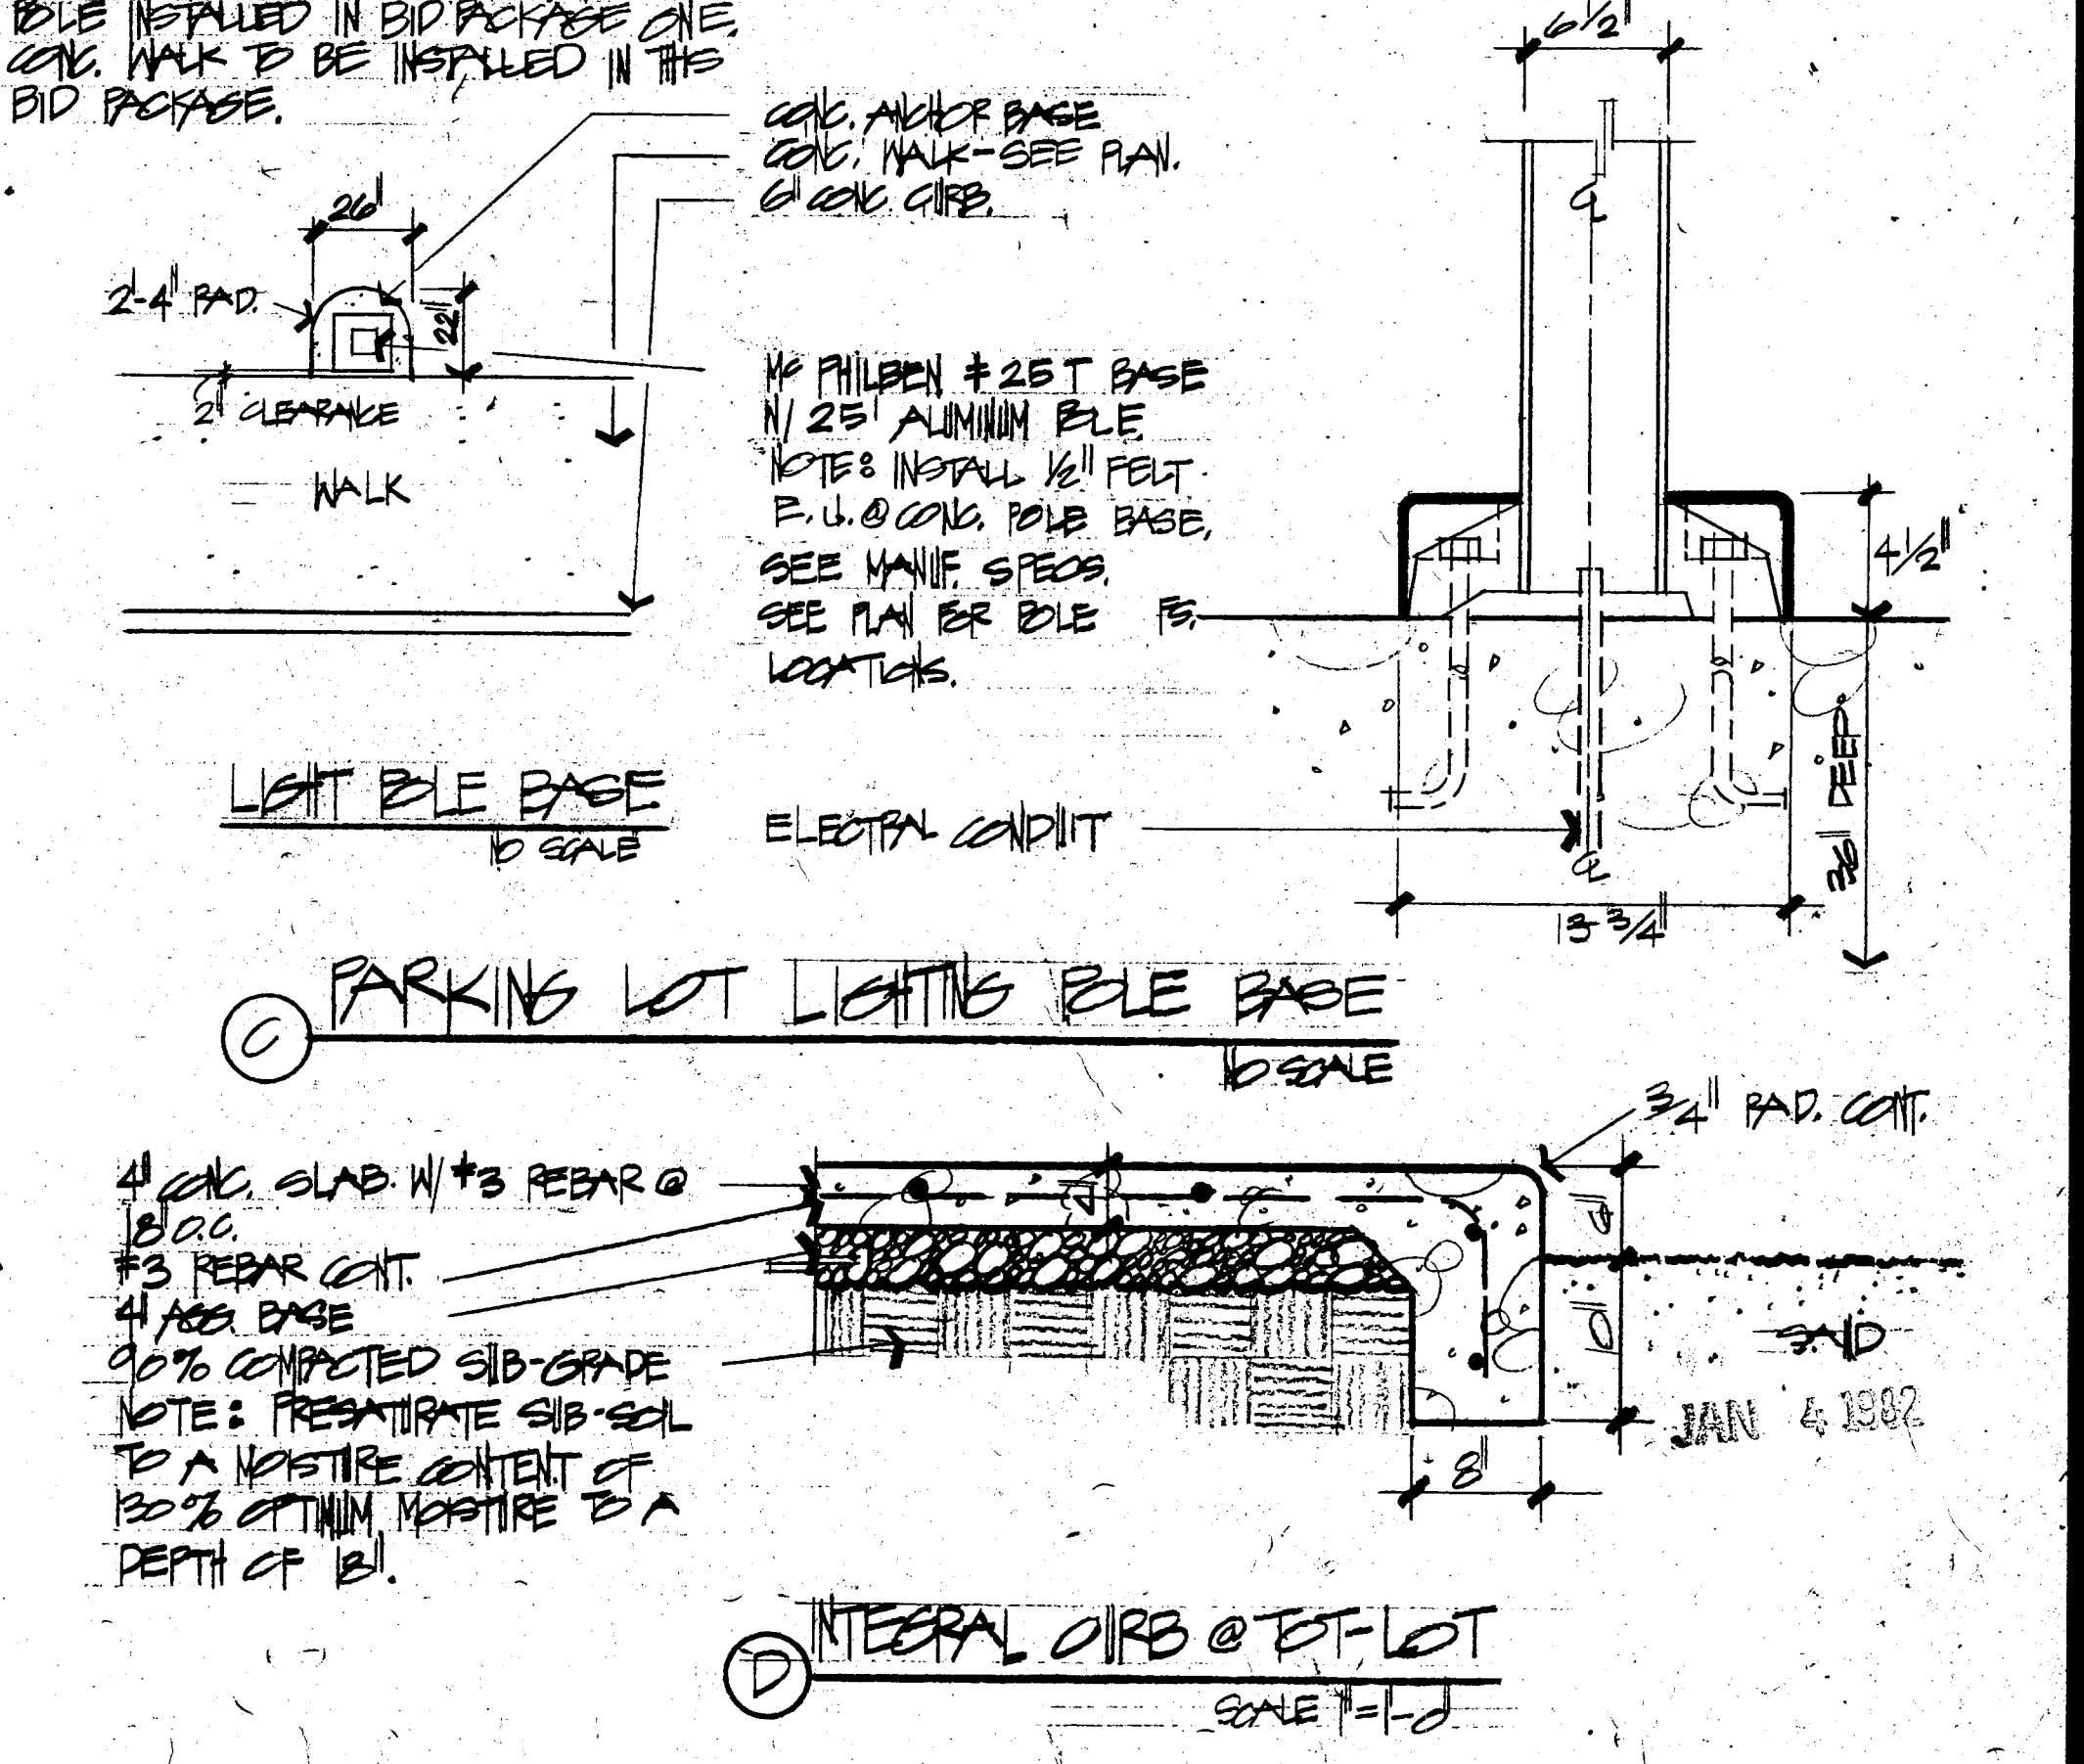 POLE INSTALLED IN BID PACKAGE ONE.
CONC. WALK TO BE INSTALLED IN THIS
BID PACKAGE.
CONC. ANCHOR BASE
CONC. WALK-SEE PLAN.
6" CONC. CURB.
26"
2'-4" RAD.
22"
2" CLEARANCE
WALK
Mc PHILBEN #25T BASE
W/ 25' ALUMINUM POLE.
NOTE: INSTALL 1/2" FELT
E.J. @ CONC. POLE BASE,
SEE MANUF. SPECS.
SEE PLAN FOR POLE
LOCATIONS.
6 1/2"
CL
4 1/2"
F.S.
36" DEEP.
ELECTRAL CONDUIT
CL
13 3/4"
LIGHT POLE BASE
NO SCALE
C
PARKING LOT LIGHTING POLE BASE
NO SCALE
3/4" RAD. CONT.
4" CONC. SLAB. W/ #3 REBAR @
18" O.C.
#3 REBAR CONT.
4" AGG. BASE
90% COMPACTED SUB-GRADE
NOTE: PRESATURATE SUB-SOIL
TO A MOISTURE CONTENT OF
130% OPTIMUM MOISTURE TO A
DEPTH OF 18".
SAND
JAN 4 1982
8"
D
INTEGRAL CURB @ TOT-LOT
SCALE 1"=1'-0"